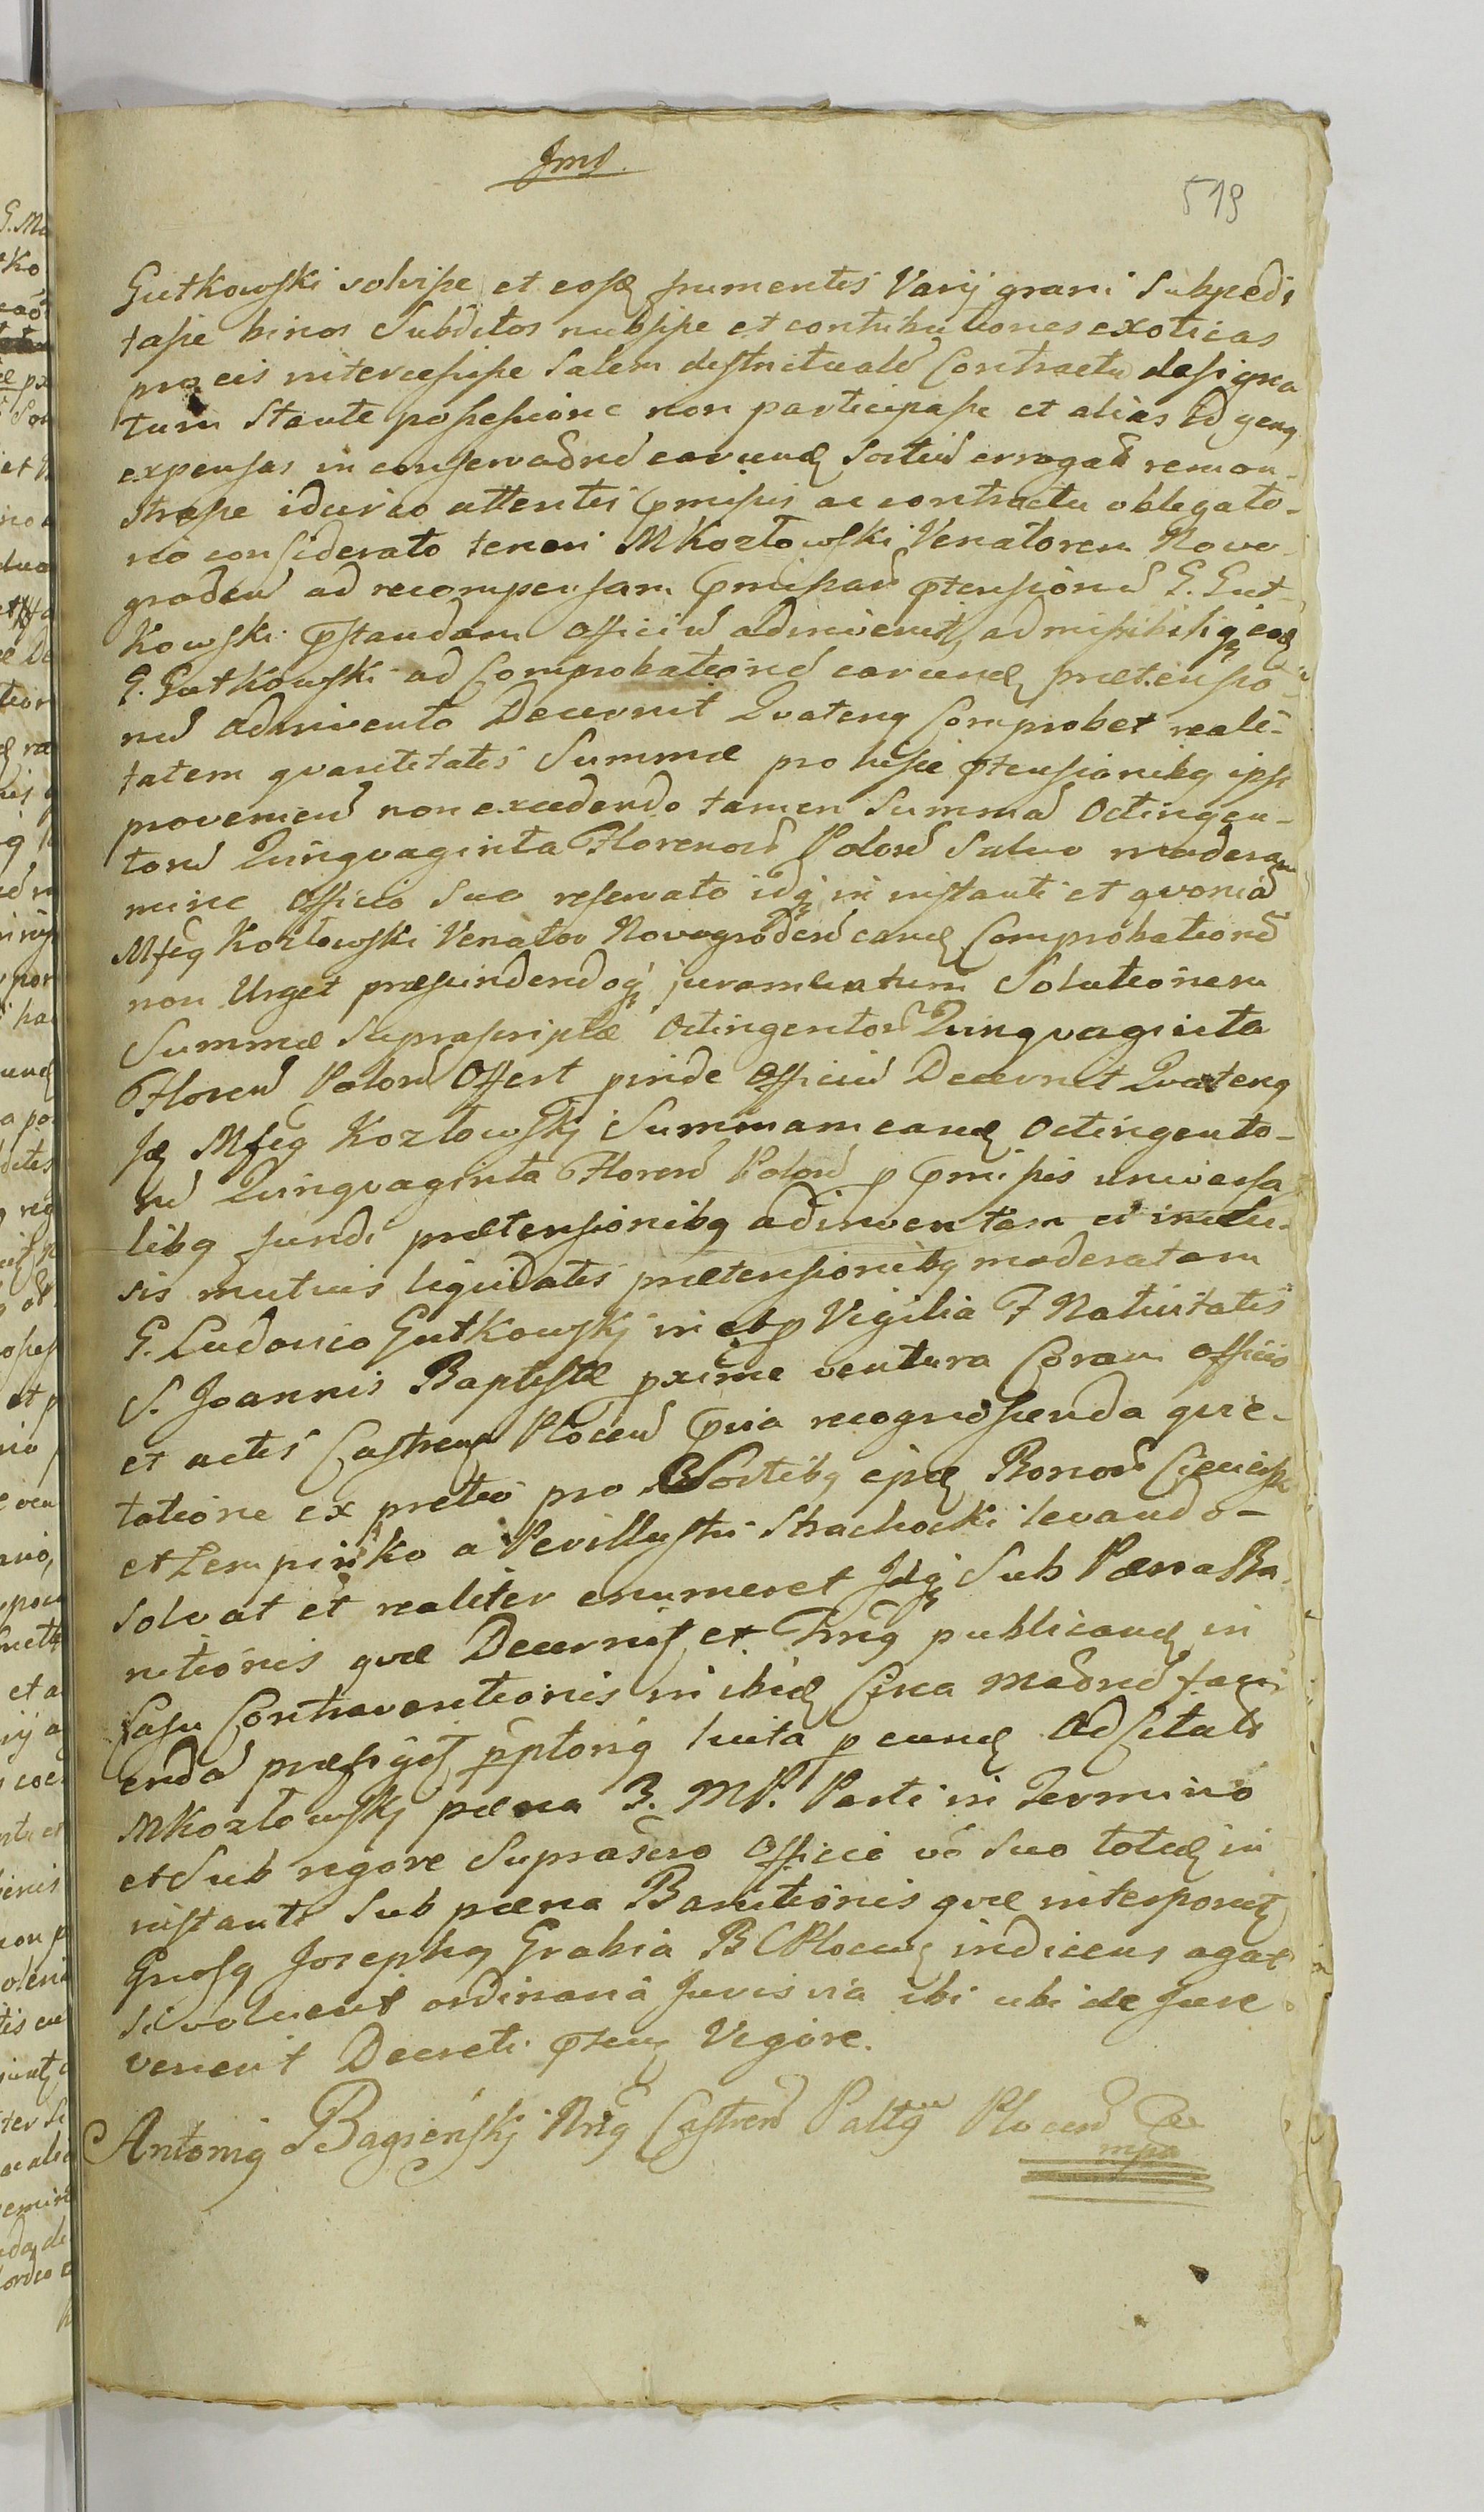 519
Gutkowski solvisse et eosdem frumentis Varij grani Subpedi
tasse binos Subditos nubsisse et contributiones exoticas
pro eis intercessisse Salem districtualem Contractu designa
tum Stante possessione non participasse et alias id genus
expensas in conservaõnem earundem Sortium errogatas remon-
strasse idcirco attentis præmissis ac contractu obligato-
rio considerato teneri M Kozłowski Venatorem Novo-
grodem ad recompensam præmissarum prætensionum G. Gut-
kowski præstandam Officium adinvenit, admissibilique eodem
G. Gutkowski ad Comprobationem earundem prætensio-
num adinvento Decernit Quatenus Comprobet reali-
tatem quantitatis Summæ pro hisce prætensionibus ipsi
provenien non excedendo tamen Summam Octingen-
torum Quinquaginta Florenorum Polon Salvo modera
mine Officio Suo reservato idque in instanti et quoniam
Mfcus Kozłowski Venator Novogroden eandem Comprobationem
non Urget præscindendoque juramentum Solutionem
Summæ Suprascriptæ Octingentorum Quinquaginta
Floren Polon Offert proinde Officium Decernit Quatenus
idem Mfcus Kozłowskj Summam eandem Octingento-
rum Quinquaginta Floren Polon p præmissis universa
libus fundi prætensionibus adinventam et inclu-
sis mutuis liquidatis prætensionibus moderatam
G. Ludovico Gutkowskj in Vigilia F Nativitatis
S. Joannis Baptistæ proxime ventura Coram officio
et actis Castren Płocen præ via recognoscenda quie-
tatione ex pretio pro Sortibus ejusdem Bonorum
et Lempinko a Perillustri Strachocki levando-
Solvat et realiter enumeret Idque Sub Pœna Ba-
nitionis quæ Decernit et Trnus publicand in
Casu Contraventionis in ibidem Circa Madnem faci
enda præfigit luita p eundem ad Citatum
M Kozłowskj pœna 3. M P. Parti in Termino
et Sub rigore Suprascro Officio vo Suo totidem in
instanti Sub pæna Banitionis quæ interponit
Gnosus Josephus Grabia B C Płocen indicens agat
Si voluerit ordinaria Juris via ibi ubi de Jure
venerit Decreti præsen Vigore.
Antonius Bagieńskj Castren Płocen
mpa